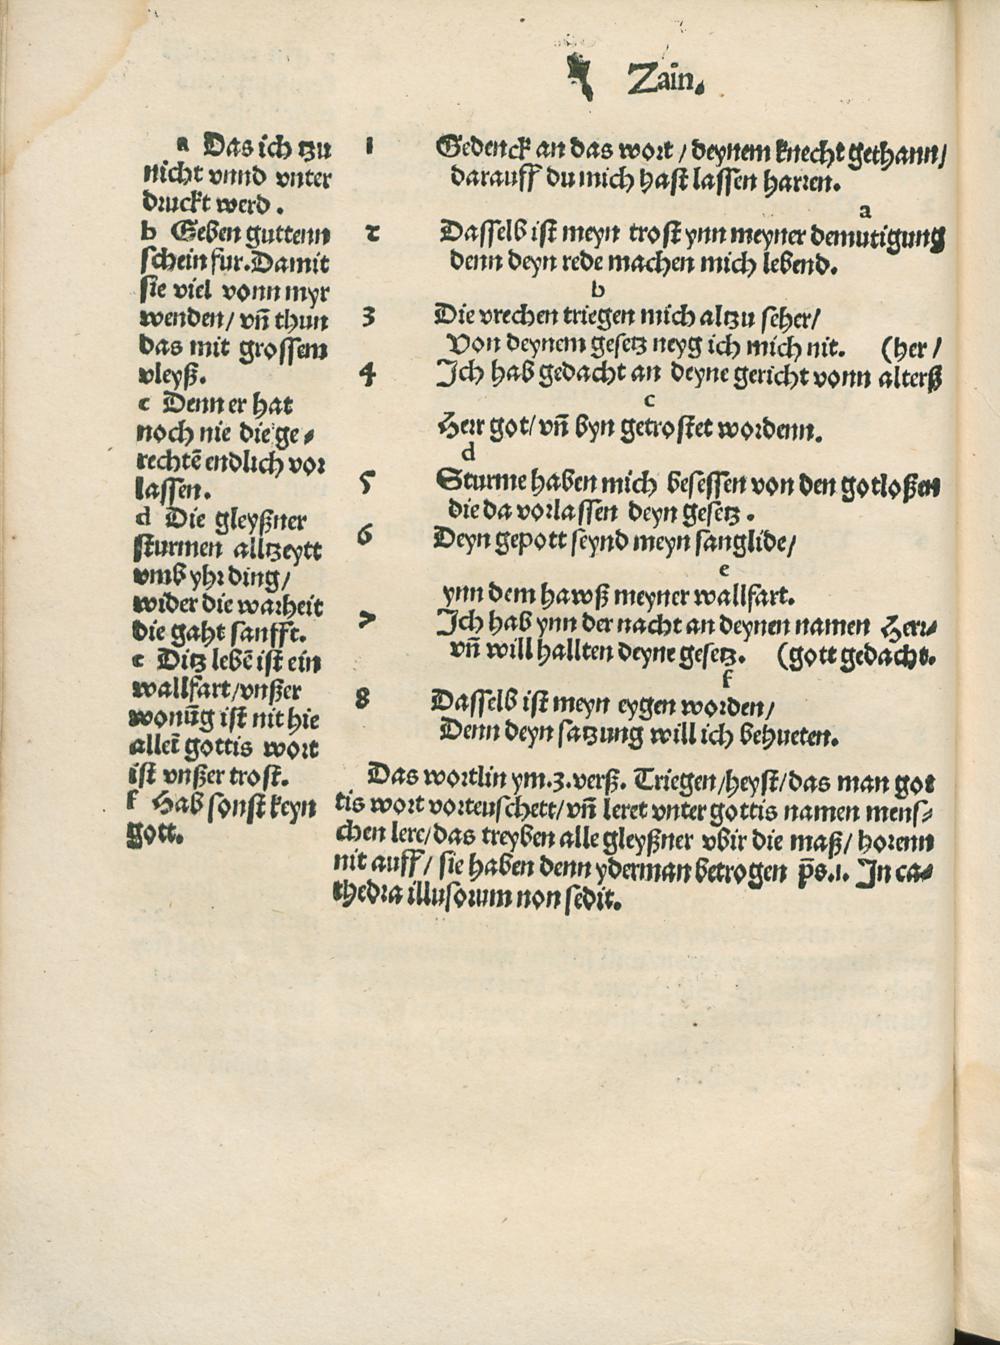 Zain.
a Das ich tzu
nicht vnnd vnter
druckt werd.
b Geben guttenn
schein fur. Damit
sie viel vonn myr
wenden/ vñ thun
das mit grossem
vleyß.
c Denn er hat
noch nie die ge⸗
rechtē endlich vor
lassen.
d Die gleyßner
sturmen alltzeytt
vmb yhr ding/
wider die warheit
die gaht sanfft.
e Ditz lebē ist ein
wallfart/vnßer
wonūg ist nit hie
alleī gottis wort
ist vnßer trost.
f Hab sonst keyn
gott.
1 Gedenck an das wort/ deynem knecht gethann/
darauff du mich hast lassen harren.
a
2 Dasselb ist meyn trost ynn meyner demutigung
denn deyn rede machen mich lebend.
b
3 Die vrechen triegen mich altzu seher/
Von deynem gesetz neyg ich mich nit. (her/
4 Ich hab gedacht an deyne gericht vonn alterß
c
Herr got/ vñ byn getrostet wordenn.
d
5 Sturme haben mich besessen von den gotloßen
die da vorlassen deyn gesetz.
6 Deyn gepott seynd meyn sanglide/
e
ynn dem hawß meyner wallfart.
7 Ich hab ynn der nacht an deynen namen Herr⸗
vñ will hallten deyne gesetz. (gott gedacht.
f
8 Dasselb ist meyn eygen worden/
Denn deyn satzung will ich behueten.
Das wortlin ym.3.verß. Triegen/heyst/das man got
tis wort vorteuschett/vñ leret vnter gottis namen mens⸗
chen lere/das treyben alle gleyßner vbir die maß/ horenn
nit auff/ sie haben denn yderman betrogen p̄s.1. In ca⸗
thedra illusorum non sedit.